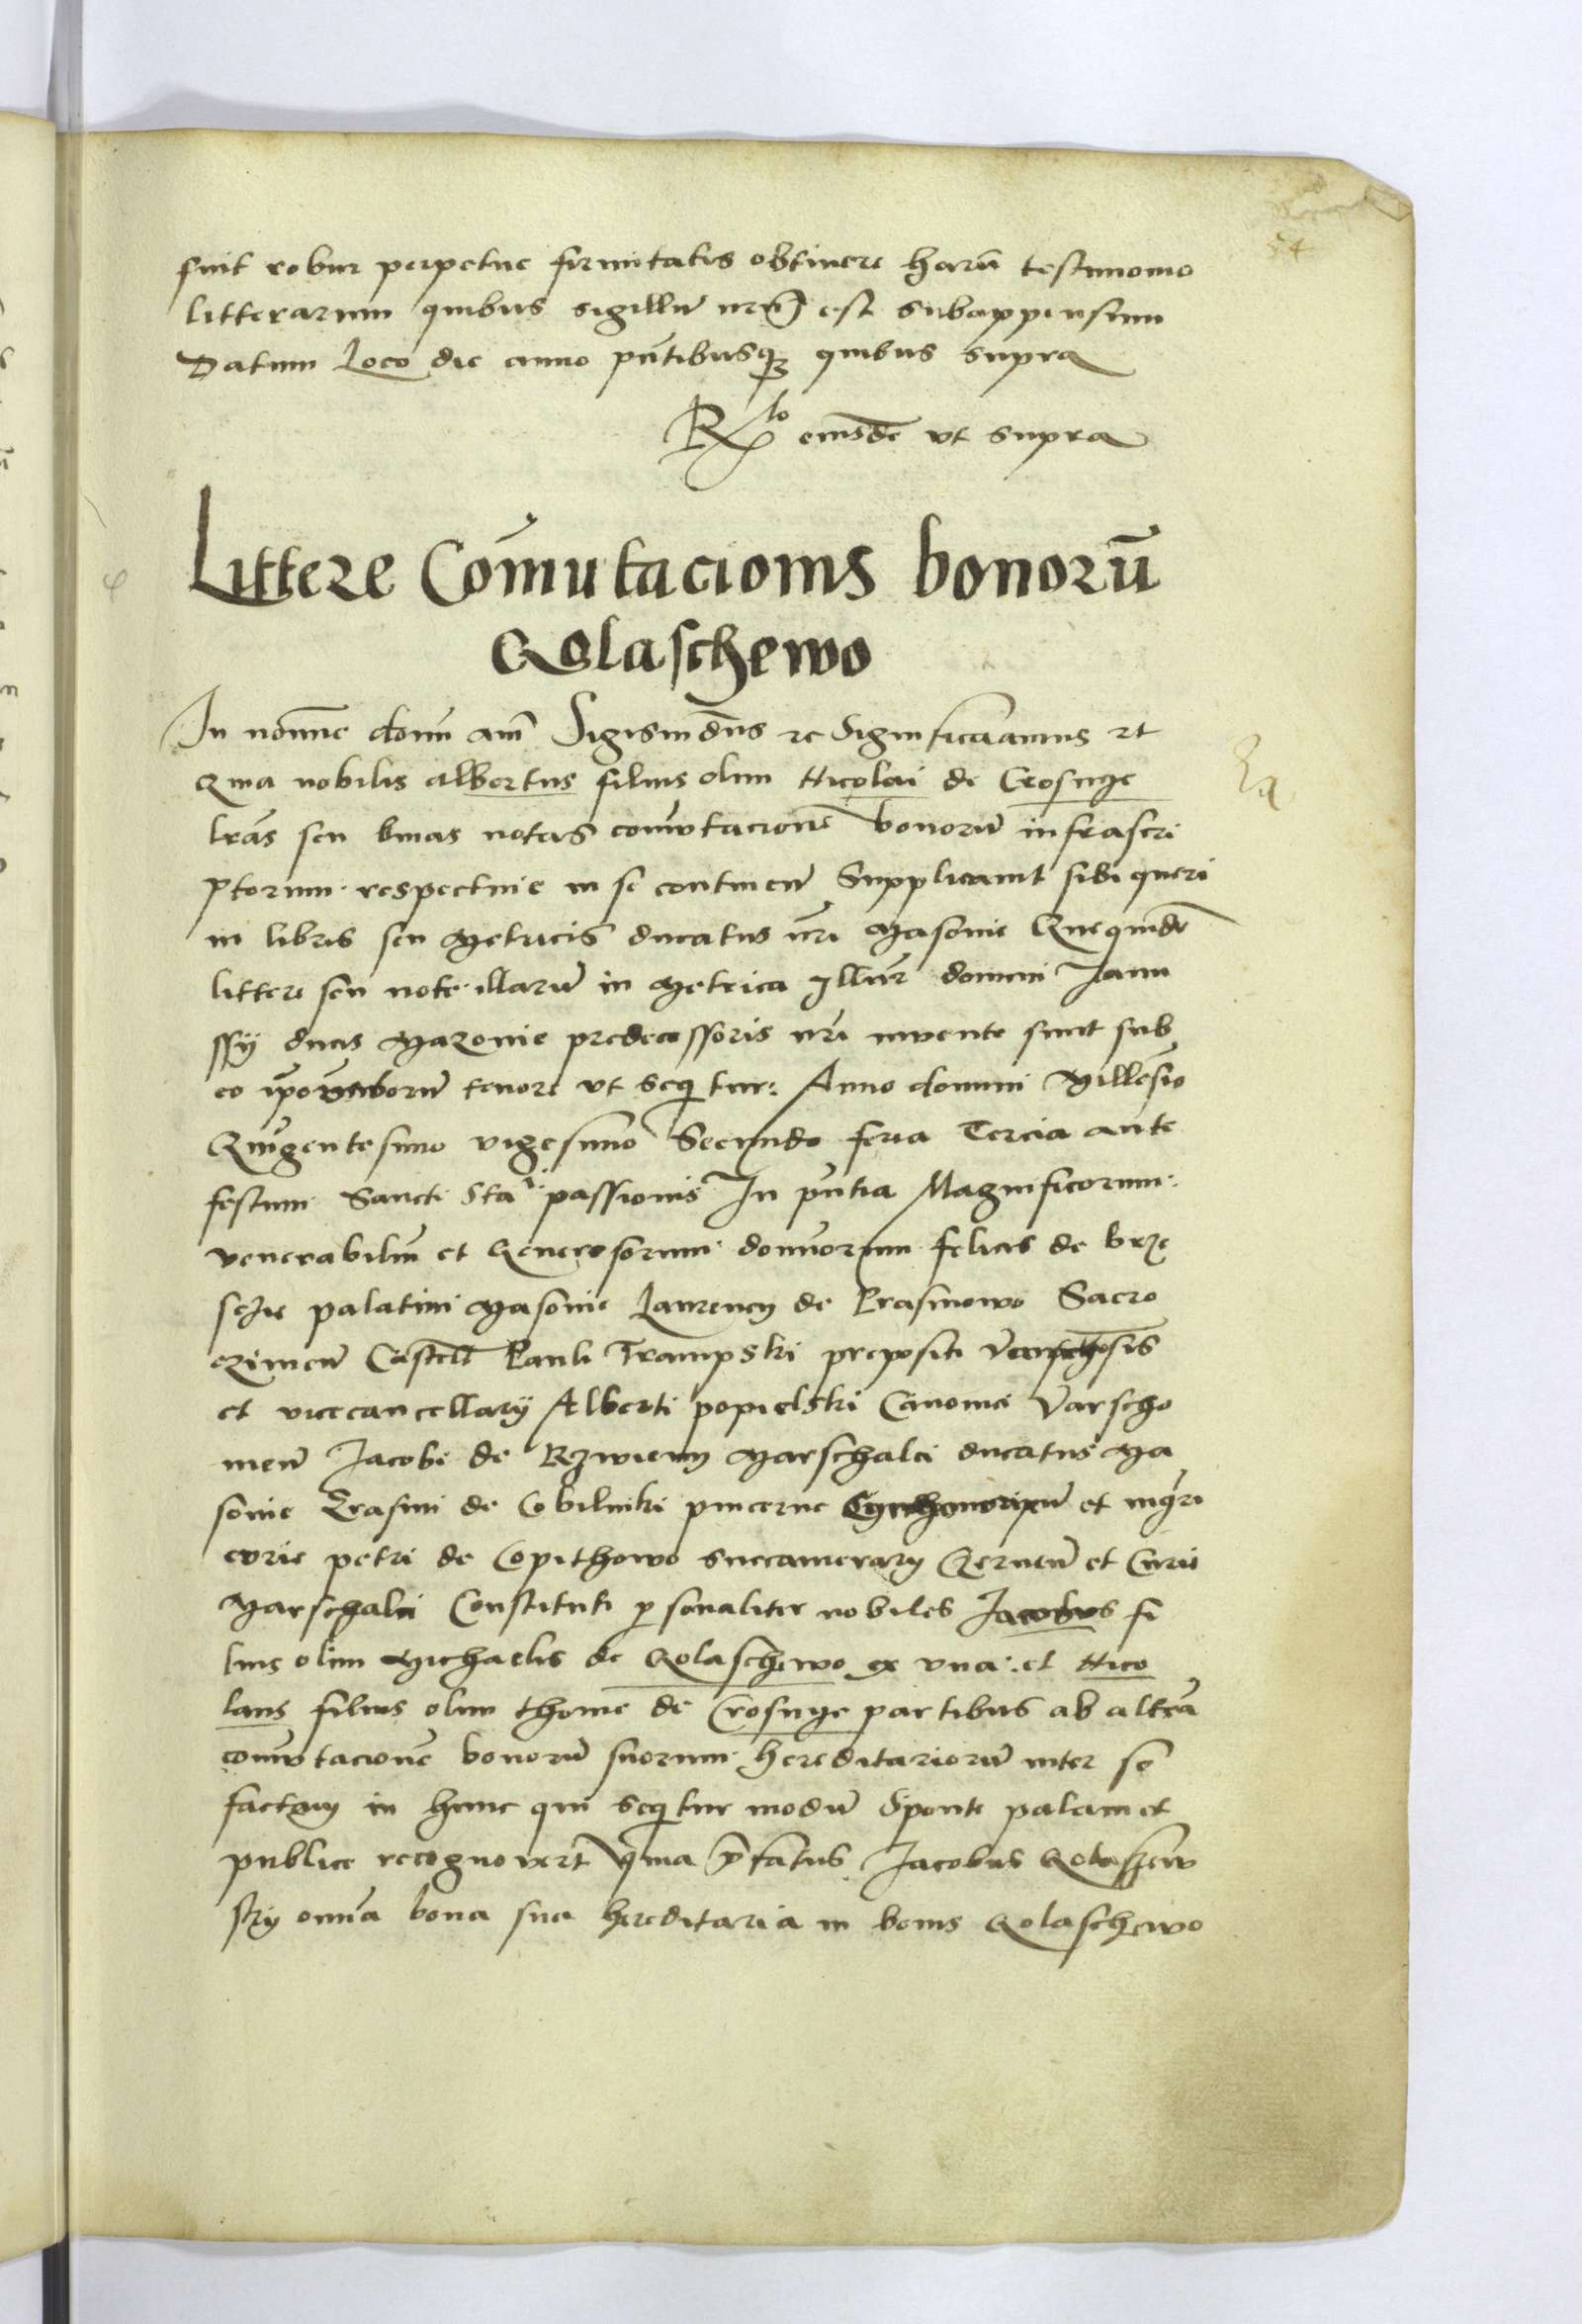 54
suit robur perpetue firmitatis obtinere harū testimonio
litterarum quibus sigillū nrm̄ est subappensum
Datum Loco die anno pn̄tibusqꝫ quibus supra
Rlo eiusdē vt supra
Littere Com̄utacionis bonorū
Golaschewo
In nomine domī am̄ Sigismdūs rc Significamus rc
Quia nobilis Albertus filius olim Nicolai de Crosnye
lrās seu binas notas com̄utacionē bonorū infrascri
ptorum respectiue in se continen̄ Supplicauit sibi queri
in libris seu Metricis ducatus nr̄i Masouie Quequidē
littere seu note illarū in Metrica Illūr domini Janu
ssij ducis Mazouie predecessoris nr̄i inuente sunt sub
eo tenore vt seqitur: Anno domini Millēsio
Quīngentesimo vigesimo Secundo feria Tercia ante
festum Sancti Stai passionis In pn̄tia Magnificorum
venerabiliū et Generosorum domīorum felicis de brze
sche palatini Masouie Laurencij de Prasmowo Sacro
czimen̄ Castell̄ Pauli Trampski prepositi
et vicecancellarij Alberti popielski Canonici Varscho
uien̄ Jacobi de Rzwieny Marschalci ducatus Ma
souie Erasmi de Cobilniki pincerne et mg̅ri
curie petri de Copithowo succamerarij Cernen̄ et Curie
Marschalci Constituti personaliter nobiles Jacobus fi
lius olim Michaelis de Golaschewo ex vna et Nico
laus filius olim thome de Crosnye partibus ab altera
com̄utacionē bonorū suorum hereditariorū inter se
factam in hunc qui seqitur modū Sponte palam et
publice recognouert̄ Quia p̄fatus Jacobus Golaszew
sky omnia bona sua hereditaria in bonis Golaschewo